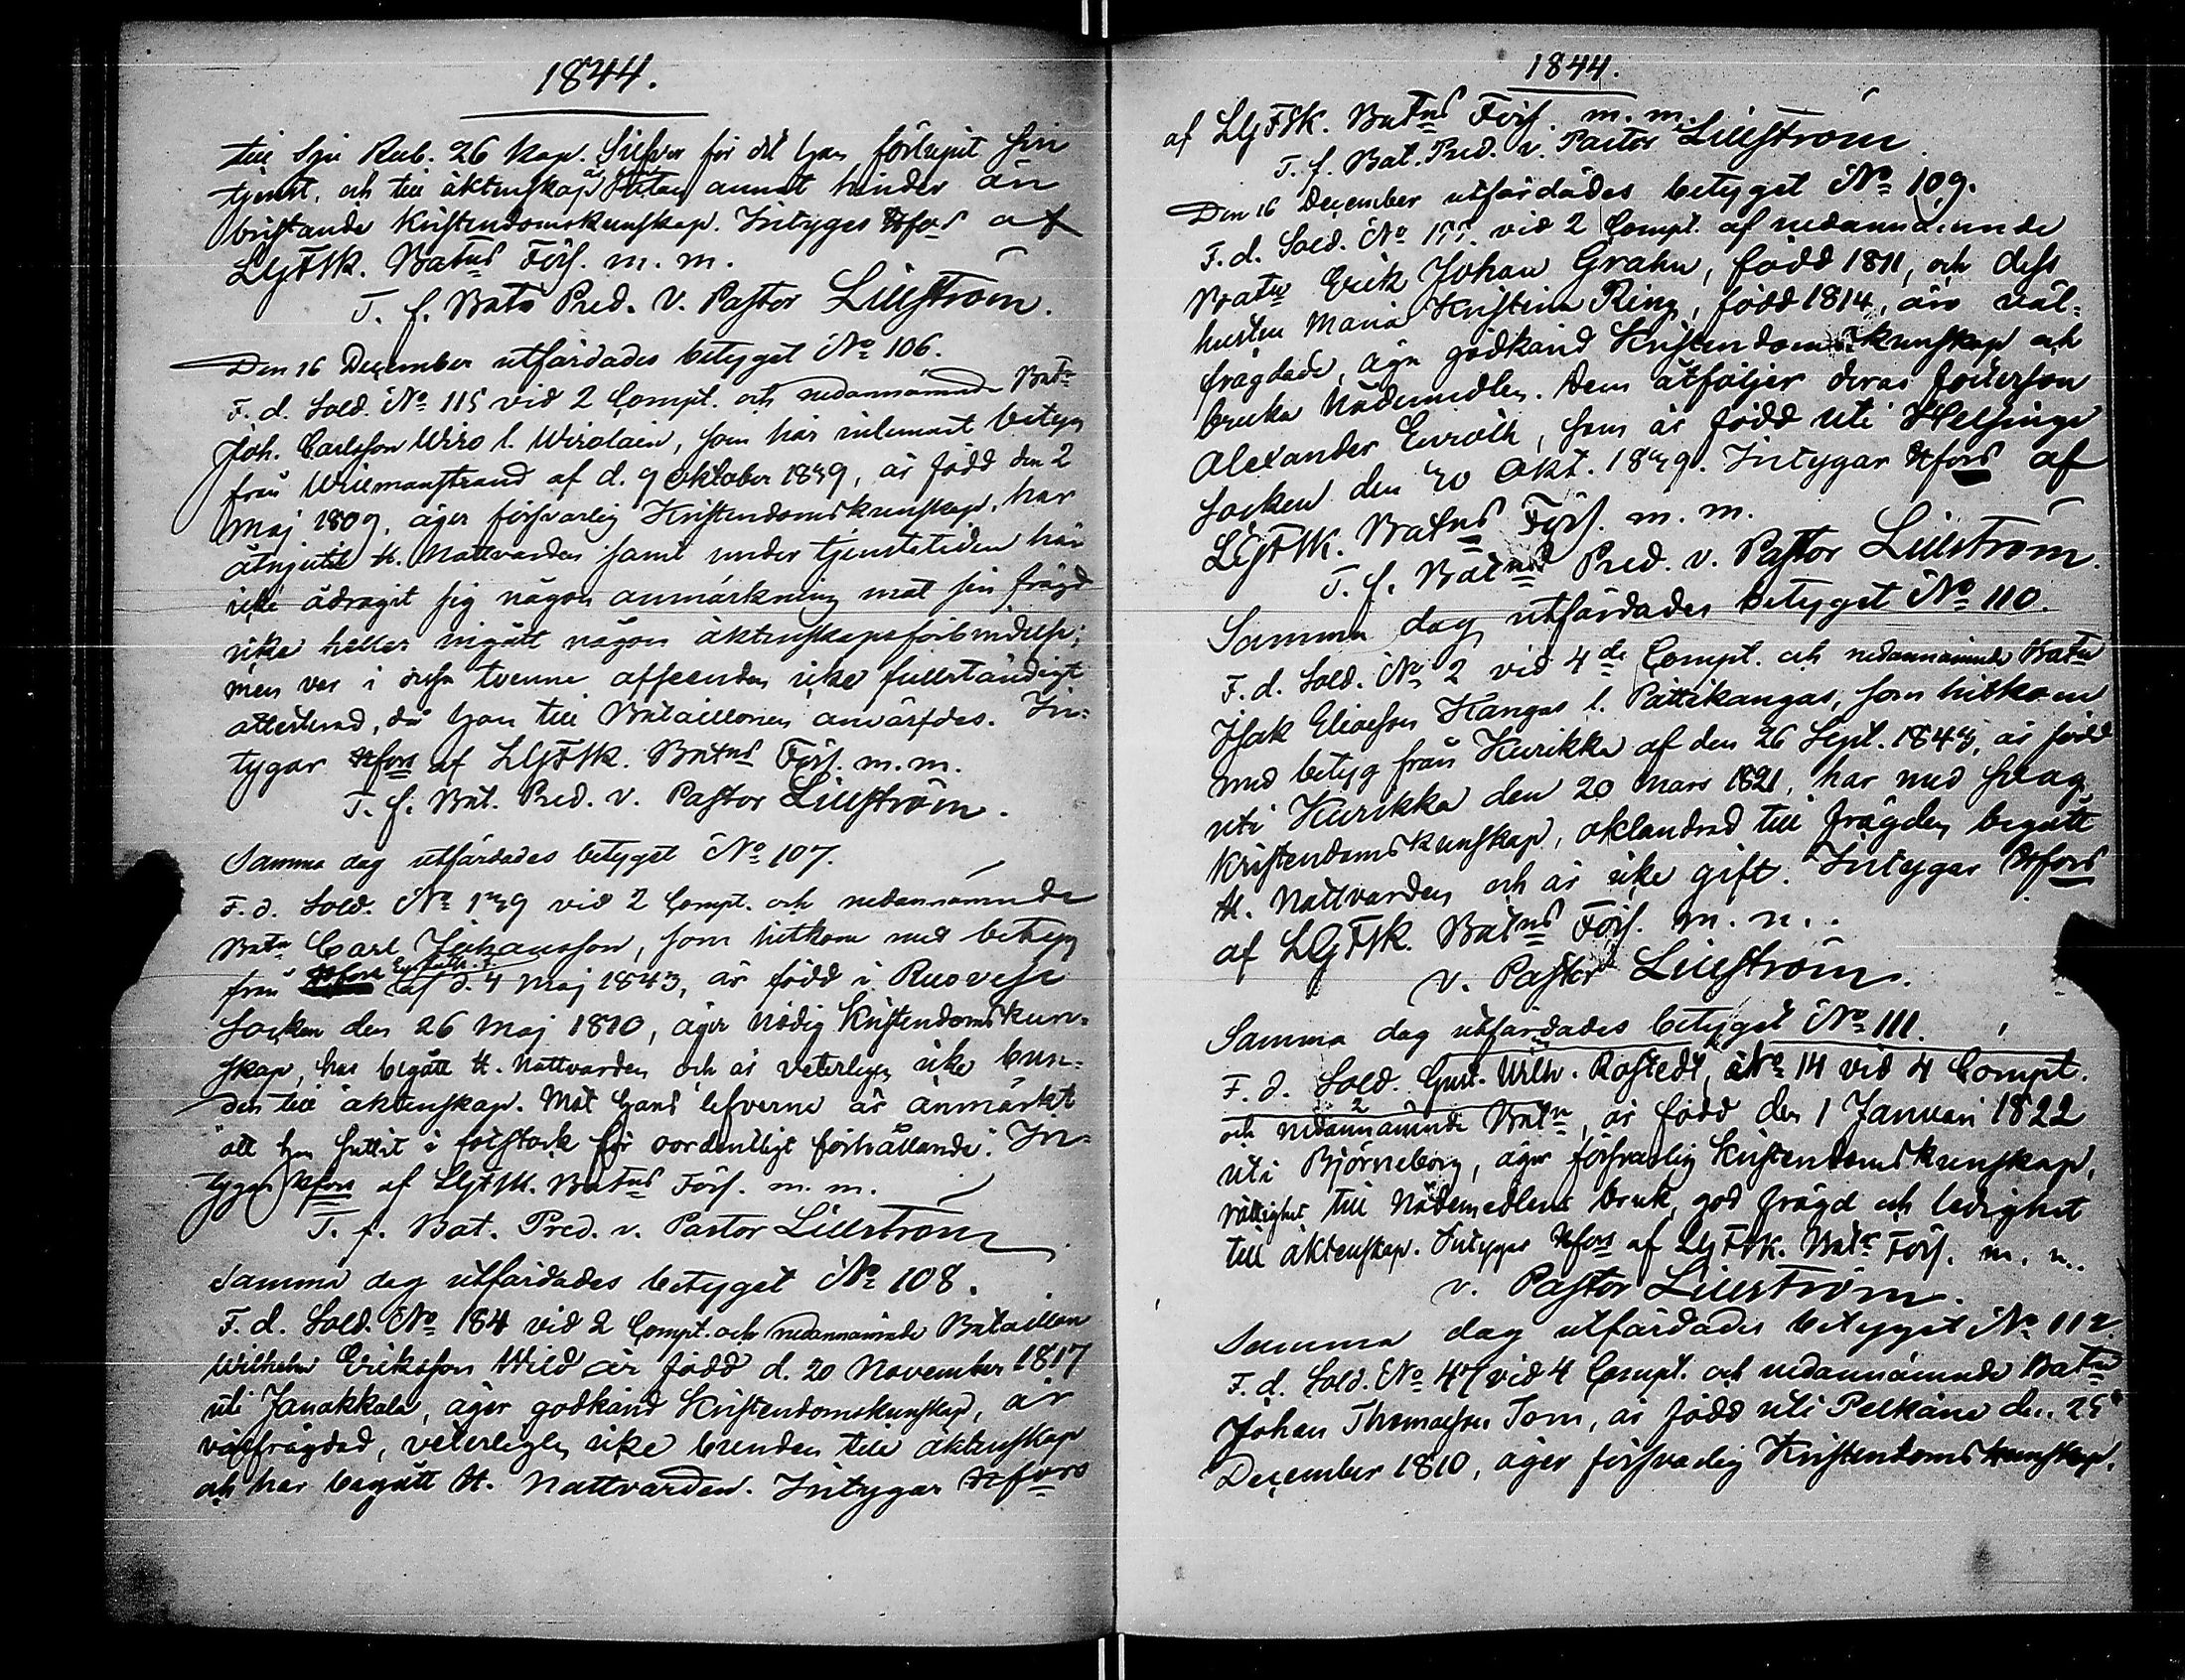 1844.
till sju Rub. 26 kop. Silfver för det han förlupit sin
tjenst, och till äktenskap är utan annat hinder än
bristande Kristendomskunskap. Intygar Hfors af
LGFSk. Batns Förs. m. m.
T. f. Bats Pred. V. Pastor Lillström.
Den 16 December utfärdades betyget No 106.
F. d. Sold. No 115 vid 2 Compt. och nedannämnde Batn
Joh. Carlsson Wiro l. Wirolain, som har inlemnat betyg
från Willmanstrand af d. 9 Oktober 1839, är född den 2
Maj 1809, äger försvarlig Kristendomskunskap, har
åtnjutit H. Nattvarden samt under tjenstetiden här
icke ådragit sig någon anmärkning mot sin frägd
icke heller ingått någon äktenskapsförbindelse;
men var i dessa tvenne afseenden icke fullständigt
attesterad, då han till Bataillonen anvärfdes. In-
tygar Hfors af LGFSk. Batns Förs. m. m.
T. f. Bat. Pred. v. Pastor Lillström.
Samma dag utfärdades betyget No 107.
F. d. Sold. No 139 vid 2 Compt. och nedannämnde
Batn Carl Johansson, som hitkom med betyg
från af d. 4 Maj 1843, är född i Ruovesi
Socken den 26 Maj 1810, äger nödig Kristendomskun-
skap, har begått H. Nattvarden och är veterligen icke bun-
den till äktenskap. Mot hans lefverne är anmärkt
"att han suttit i fotstock för oordentligt förhållande". In-
tygar Hfors af LGFSk. Batns Förs. m. m.
T. f. Bat. Pred. v. Pastor Lillström
Samma dag utfärdades betyget No 108.
F. d. Sold. No 184 vid 2 Compt. och nedannämnde Bataillon
Wilhelm Eriksson Wild är född d. 20 November 1817
uti Janakkala, äger godkänd Kristendomskunskap, är
välfrägdad, veterligen icke bunden till äktenskap
och har begått H. Nattvarden. Intygar Hfors
1844.
af LGFSk. Batns Förs. m. m.
T. f. Bat. Pred. v. Pastor Lillström
Den 16 December utfärdades betyget No 109.
F. d. Sold. No 155 vid 2 Compt. af nedannämnde
Batn Erik Johan Grahn, född 1811, och dess
hustru Maria Kristina Ring, född 1814, äro väl-
frägdade, äga godkänd Kristendomskunskap och
bruka Nådemedlen. Dem åtföljer deras fosterson
Alexander Enroth, som är född uti Helsinge
Socken den 30 Okt. 1839. Intygar Hfors af
LGFSk. Batns Förs. m. m.
T. f. Batns Pred. v. Pastor Lillström.
Samma dag utfärdades betyget No 110.
F. d. Sold. No 2 vid 4de Compt. och nedannämnde Batn
Isak Eliasson Kangas l. Pättikangas, som hitkom
med betyg från Kurikka af den 26 Sept. 1843, är född
uti Kurikka den 20 Mars 1821, har med svag
Kristendomskunskap, oklandrad till frägden begått
H. Nattvarden och är icke gift. Intygar Hfors
af LGFSk. Batns Förs. m. m.
v. Pastor Lillström.
Samma dag utfärdades betyget No 111.
F. d. Sold. Gust. Wilh. Rostedt, No 14 vid 4 Compt.
och nedannämnde Batn, är född den 1 Januari 1822
uti Björneborg, äger försvarlig Kristendomskunskap,
rättighet till Nådemedlens bruk, god frägd och ledighet
till äktenskap. Intygar Hfors af LGFSk. Batn Förs. m. m.
v. Pastor Lillström.
Samma dag utfärdades betyget No 112.
F. d. Sold. No 47 vid 4 Compt. och nedannämnde Batn
Johan Thomasson Tom, är född uti Pelkäne den 25
December 1810, äger försvarlig Kristendomskunskap,